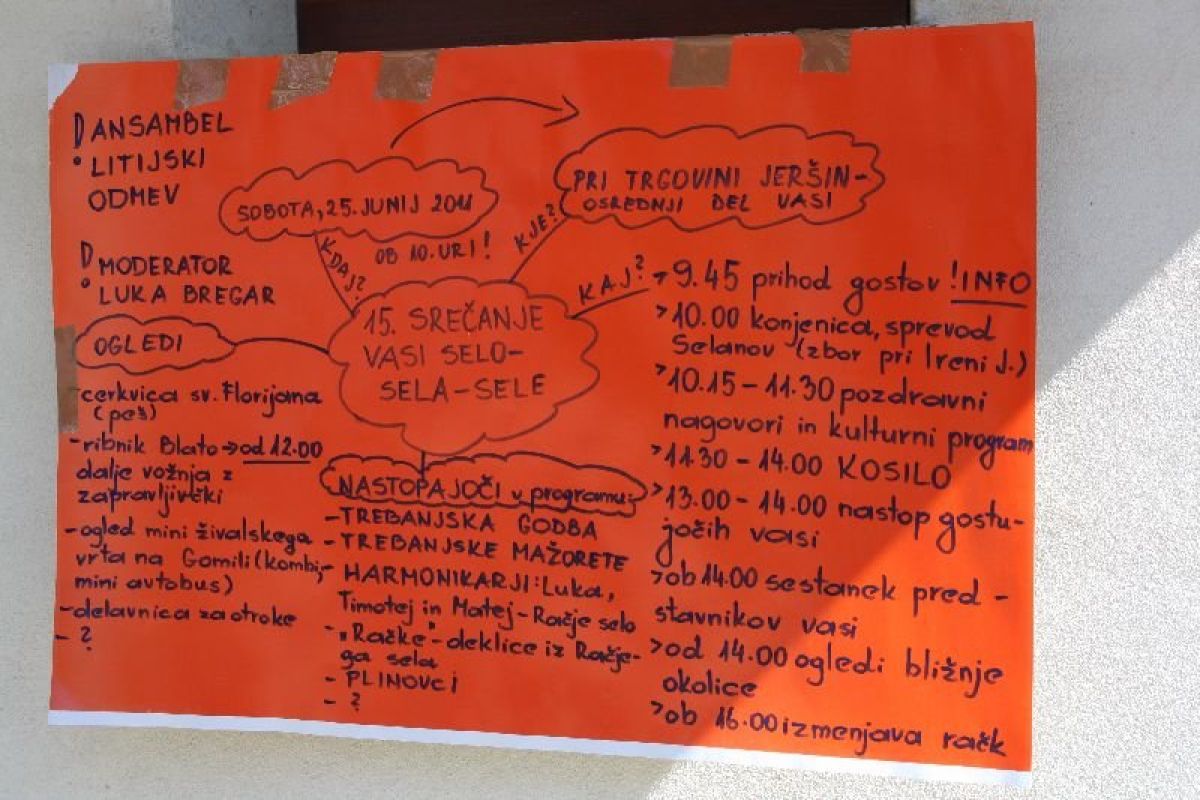 DANSAMBEL
• LITIJSKI
ODMEV
SOBOTA, 25. JUNIJ 2011
OB 10. URI!
PRI TRGOVINI JERŠIN-
OSREDNJI DEL VASI
D MODERATOR
• LUKA BREGAR
KDAJ?
KJE?
KAJ?
15. SREČANJE
VASI SELO-
SELA-SELE
OGLEDI
-cerkvica sv. Florijana
(peš)
-ribnik Blato → od 12.00
dalje vožnja z
zapravljivčki
-ogled mini živalskega
vrta na Gomili (kombi,
mini avtobus)
-delavnica za otroke
- ?
NASTOPAJOČI v programu:
-TREBANJSKA GODBA
-TREBANJSKE MAŽORETE
- HARMONIKARJI: Luka,
Timotej in Matej - Račje selo
- "Račke" - deklice iz Račje-
ga sela
- PLINOVCI
- ?
> 9.45 prihod gostov !INFO
> 10.00 konjenica, sprevod
Selanov (zbor pri Ireni J.)
> 10.15 - 11.30 pozdravni
nagovori in kulturni program
> 11.30 - 14.00 KOSILO
> 13.00 - 14.00 nastop gostu-
jočih vasi
> ob 14.00 sestanek pred -
stavnikov vasi
> od 14.00 ogledi bližnje
okolice
> ob 16.00 izmenjava račk